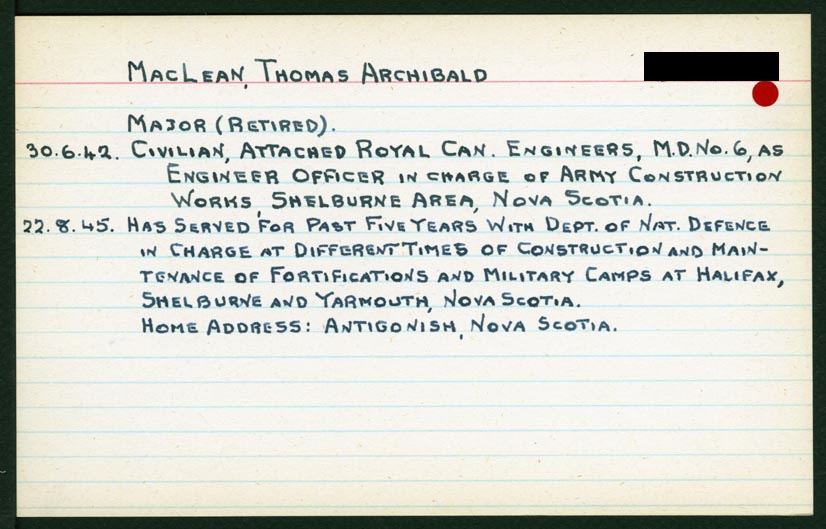 MacLean, Thomas Archibald
Major (Retired).
30.6.42. Civilian, Attached Royal Can. Engineers, M.D. No. 6, as
Engineer Officer in charge of Army Construction
Works, Shelburne Area, Nova Scotia.
22.8.45. Has Served For Past Five Years With Dept. of Nat. Defence
in Charge at Different Times of Construction and Main-
tenance of Fortifications and Military Camps at Halifax,
Shelburne and Yarmouth, Nova Scotia.
Home Address: Antigonish, Nova Scotia.